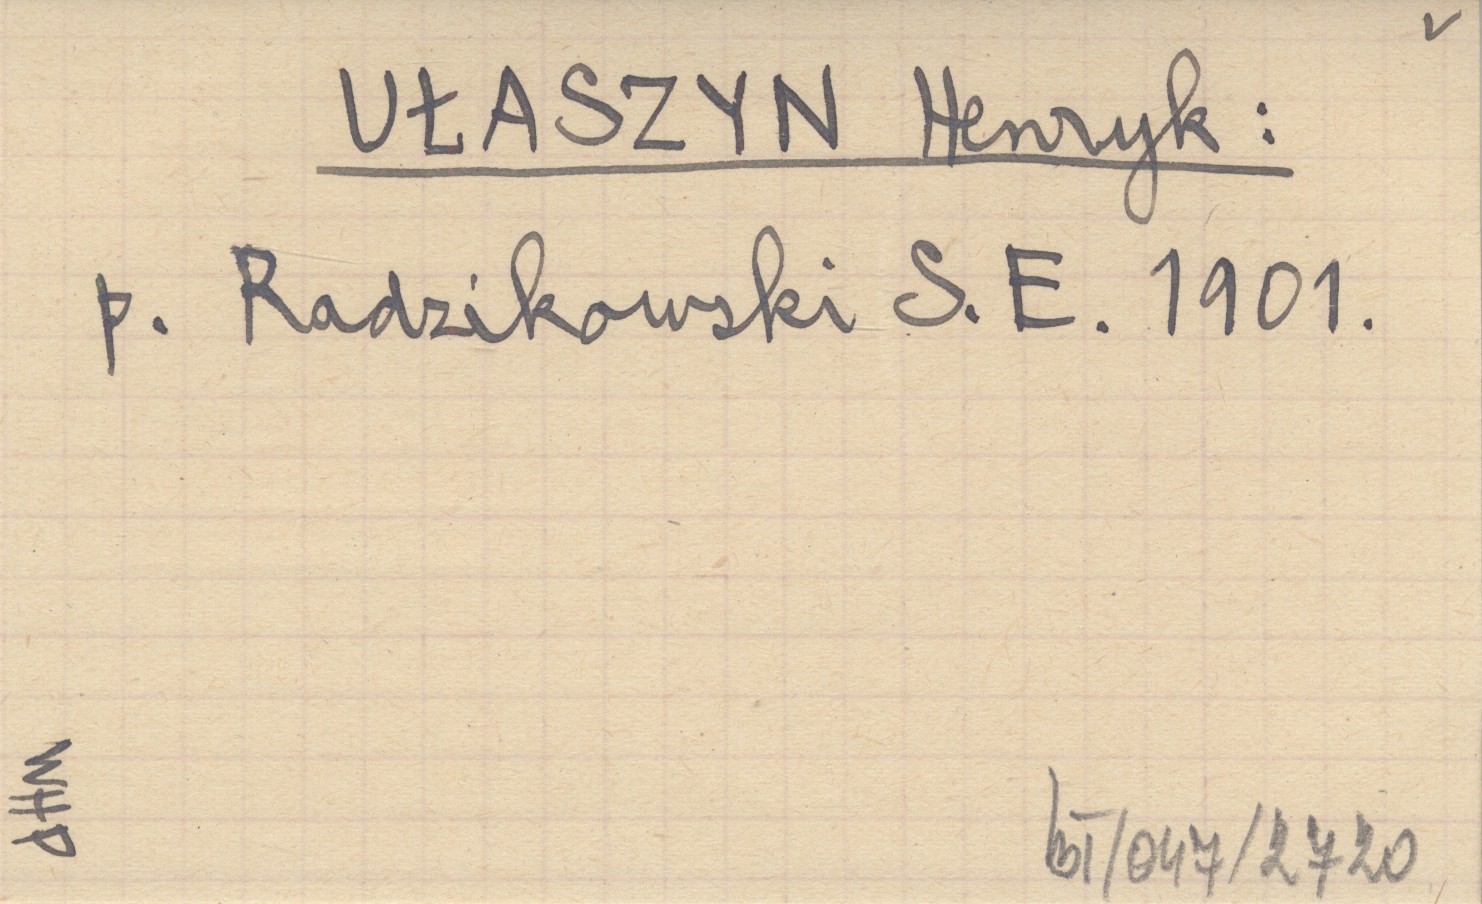 UŁASZYN Henryk:
p. Radzikowski S. E. 1901.
WHP
bI/047/2720